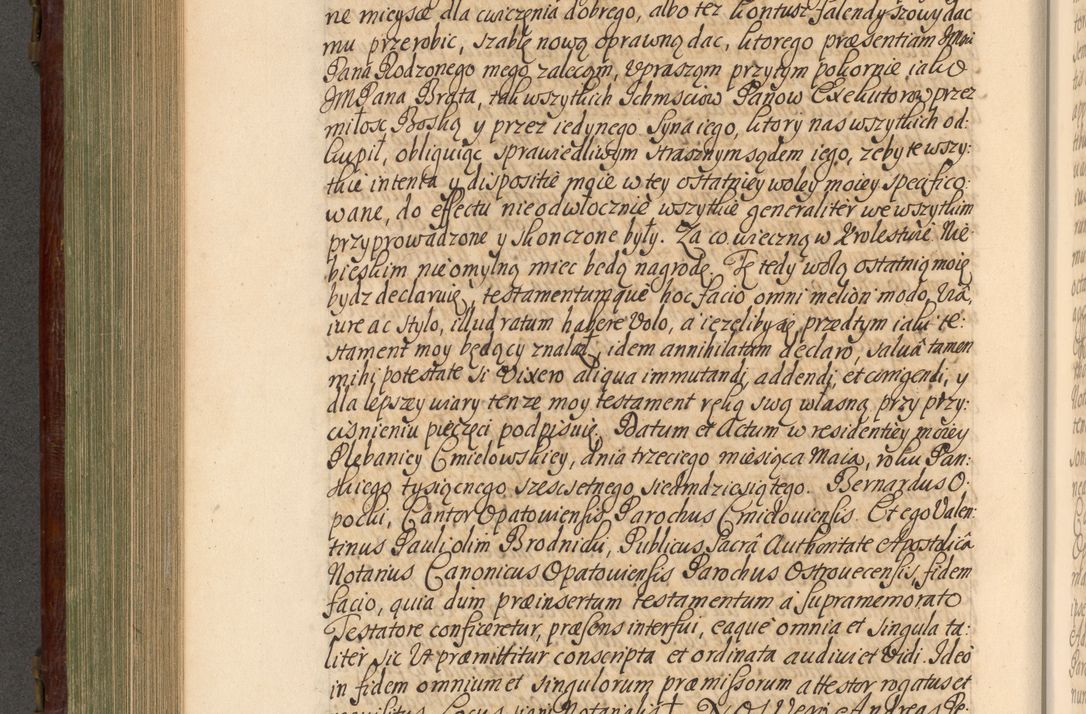 ne mieysce dla cwiczenia dobrego, albo tez kontusz falendyszowy dac
mu przerobic, szablę nową oprawną dac, ktorego præsentiam JMci
Pana Rodzonego mego zalecam, Upraszam przytym pokornie iako
JMPana Brata, tak wszytkich Ichmsciow Panow Exekutorow przez
miłosc Boską y przez iedynego Syna iego, ktory nas wszytkich od:
kupił, obliguiąc sprawiedliwym strasznym sądem iego, zeby te wszy:
tkie intenta y dispositie moie w tey ostatniey woley moiey specifico:
wane, do effectu nieodwłocznie wszytkie generaliter we wszytkim
przyprowadzone y skonczone były. Za co wieczną w Krolestwie Nie:
bieskim nieomylną miec będą nagrodę. Tę tedy wolą ostatnią moię
bydz declaruię, testamentumque hoc facio omni meliori modo, via,
iure ac stylo, illud ratum habere volo, a iezeliby się przedtym iaki te:
stament moy będący znalazł, idem annihilatum declaro, salva tamen
mihi potestate si vixero aliqua immutandi, addendi, et corrigendi, y
dla lepszey wiary tenze moy testament ręką swą własną przy przy:
cisnieniu pieczęci podpisuię. Datum et Actum w residentiey moiey
Plebaniey Cmielowskiey, dnia trzeciego miesiąca Maia, roku Pan:
skiego tysiącnego szescsetnego siedmdziesiątego. Bernardus O:
pocki, Cantor Opatoviensis Parochus Cmieloviensis. Et ego Valen:
tinus Pauli olim Brodnicki, Publicus Sacrâ Authoritate Apostolicâ
Notarius Canonicus Opatoviensis Parochus Ostrovecensis, fidem
facio, quia dum præinsertum testamentum a supramemorato
Testatore conficeretur, præsens interfui, eaque omnia et singula ta:
liter sic ut præmittitur conscripta et ordinata audivi et vidi. Ideo
in fidem omnium et singulorum præmissorum attestor rogatus et
requisitus. Locus signi Notarialis. NOS